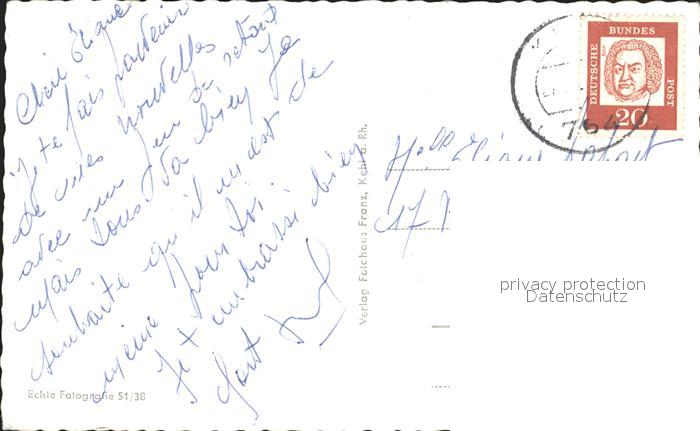 Chère Eliane
Je te fais parvenir
de mes nouvelles
avec un jour de retard
mais tous va bien je
souhaite qu'il en est de
même pour toi.
Je t'embrasse bien
fort
Echte Fotografie 51/38
Verlag Foldhaus Franz, Kehl a. Rh.
DEUTSCHE BUNDES POST
20
764
Melle Eliane
17
privacy protection
Datenschutz